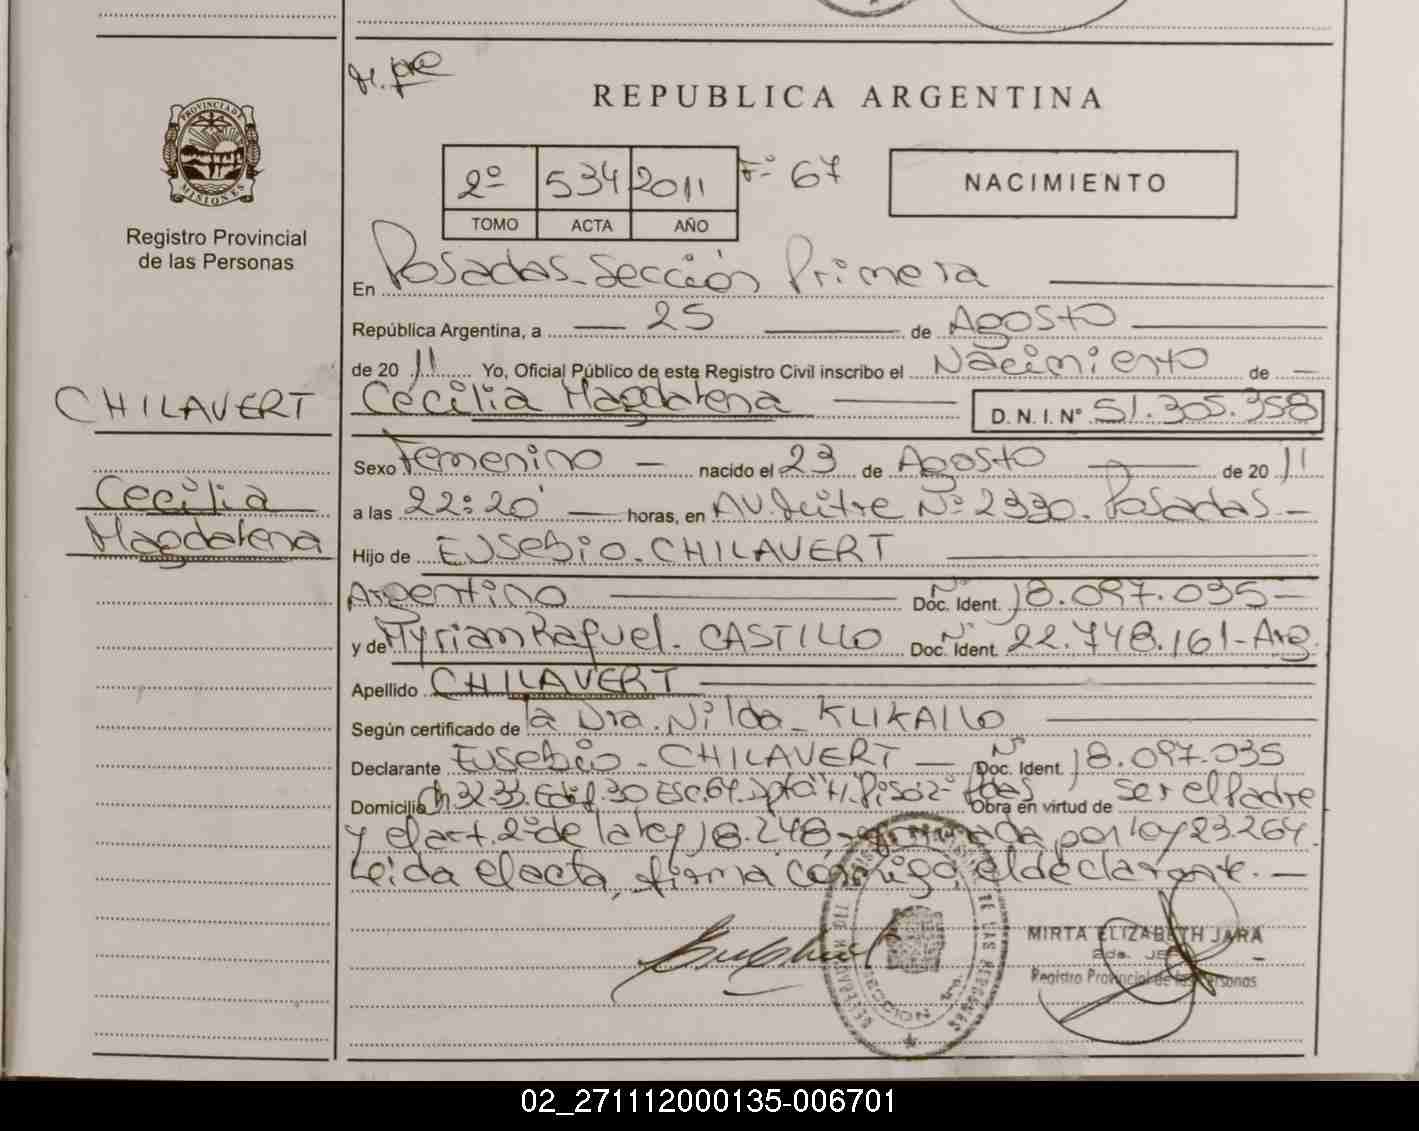 M. pre
REPUBLICA ARGENTINA
PROVINCIA DE MISIONES
Registro Provincial
de las Personas
2º 534 2011 Fº 67
TOMO ACTA AÑO
NACIMIENTO
En Posadas - Sección Primera
República Argentina, a 25 de Agosto
de 20 11 Yo, Oficial Público de este Registro Civil inscribo el Nacimiento de
CHILAVERT
Cecilia Magdalena D.N.I. Nº 51.305.358
Sexo Femenino nacido el 23 de Agosto de 20 11
Cecilia
Magdalena
a las 22:20 horas, en AV. Mitre Nº 2330. Posadas -
Hijo de Eusebio - CHILAVERT
Argentino Doc. Ident. Nº 18.097.035 -
y de Myrian Raquel - CASTILLO Doc. Ident. Nº 22.748.161 - Arg.
Apellido CHILAVERT
Según certificado de la Dra. Nilda - KLIKAILO
Declarante Eusebio - CHILAVERT - Doc. Ident. Nº 18.097.035
Domicilio Ch 32.33. Edif. 30 Esc. 64. Dpto "H". Piso 2º Pdas Obra en virtud de ser el Padre
y el art. 2º de la ley 18.248, por ley 23.264.
Leida el acta, firma conmigo, el declarante. -
MIRTA ELIZABETH JARA
Registro Provincial de las Personas
02_271112000135-006701